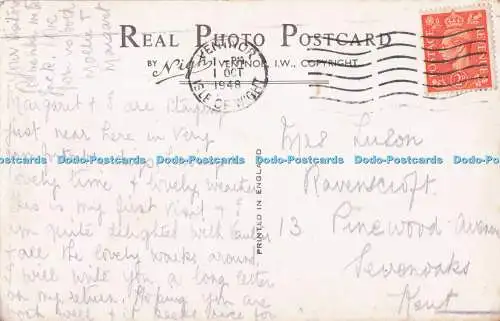 REAL PHOTO POSTCARD
By Nigh, VENTNOR, I.W., COPYRIGHT
VENTNOR
1 OCT
1948
ISLE OF WIGHT
POSTAGE
REVENUE
Margaret + I are staying
just near here in very
lovely time + lovely weather
this is my first visit + I
am quite delighted with
+ all the lovely walks around.
I will write you a long letter
on my return. Hoping you are
both well +
Mollie +
Margaret
PRINTED IN ENGLAND
Mrs Luson
Ravenscroft
13 Pinewood Avenue
Sevenoaks
Kent
Dodo-Postcards Dodo-Postcards Dodo-Postcards Dodo-Postcards Dodo-Postcards Dodo-Postcards